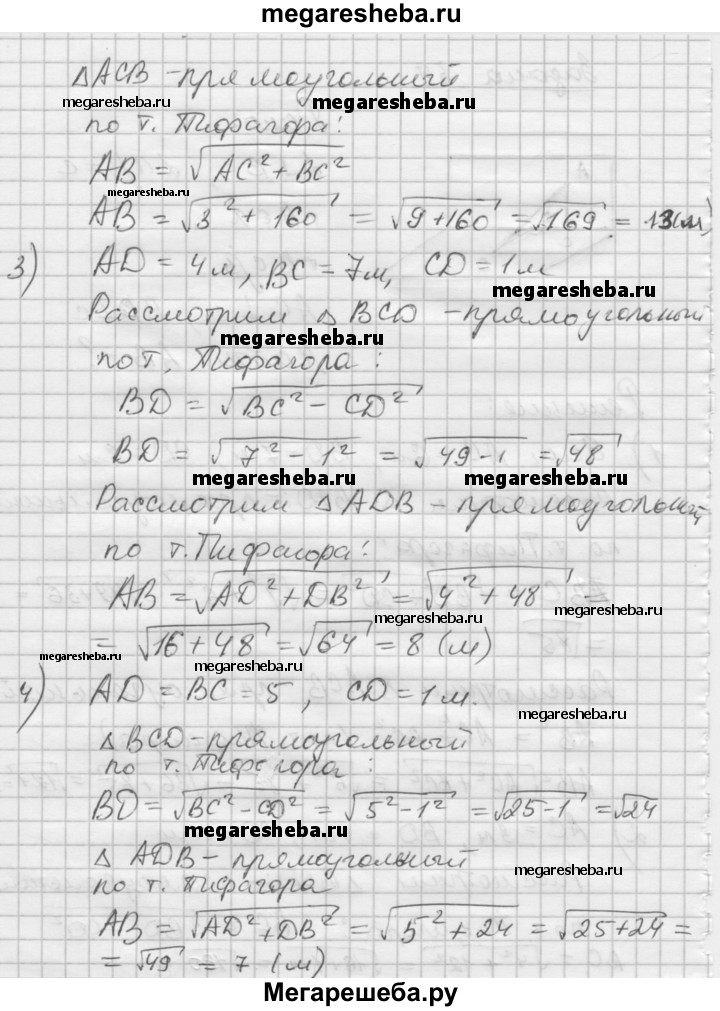 megaresheba.ru
△ACB - прямоугольный
megaresheba.ru megaresheba.ru
по т. Пифагора:
AB = √(AC² + BC²)
megaresheba.ru
AB = √(3² + 160) = √(9 + 160) = √169 = 13(м)
3) AD = 4 м, BC = 7 м, CD = 1 м
megaresheba.ru
Рассмотрим △BCD - прямоугольный
megaresheba.ru
по т. Пифагора:
BD = √(BC² - CD²)
BD = √(7² - 1²) = √(49 - 1) = √48
megaresheba.ru megaresheba.ru
Рассмотрим △ADB - прямоугольный,
по т. Пифагора:
AB = √(AD² + DB²) = √(4² + 48) =
megaresheba.ru
= √(16 + 48) = √64 = 8 (м)
megaresheba.ru megaresheba.ru
4) AD = BC = 5, CD = 1 м.
megaresheba.ru
△BCD - прямоугольный
по т. Пифагора:
BD = √(BC² - CD²) = √(5² - 1²) = √(25 - 1) = √24
megaresheba.ru
△ADB - прямоугольный
megaresheba.ru
по т. Пифагора
AB = √(AD² + DB²) = √(5² + 24) = √(25 + 24) =
= √49 = 7 (м)
Мегарешеба.ру